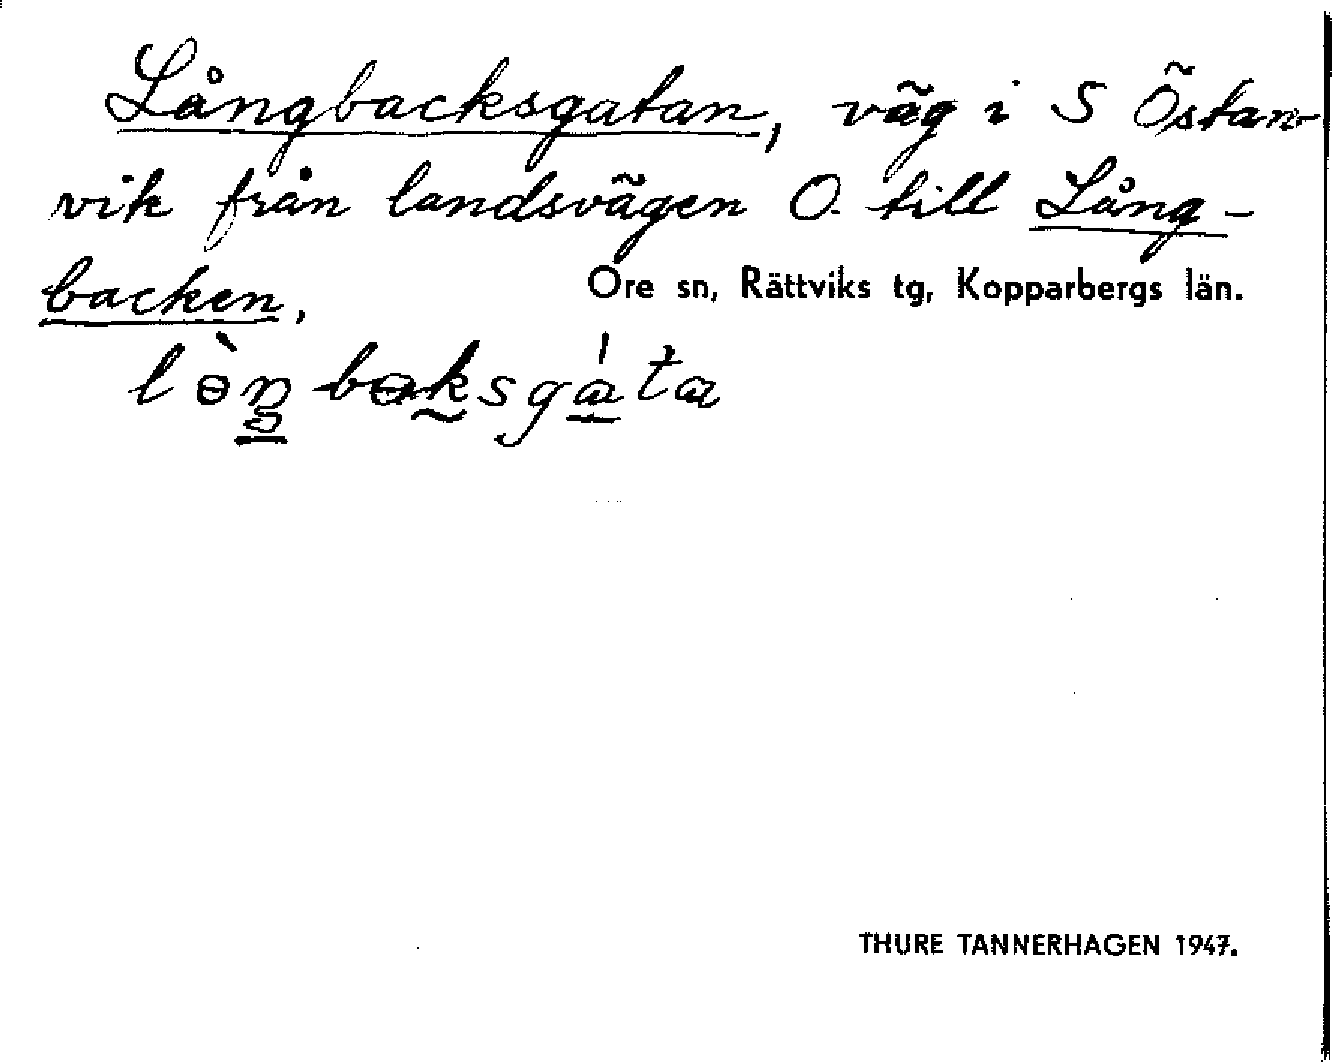 Långbacksgatan, väg i S Östan-
vik från landsvägen O. till Lång-
backen.
Ore sn, Rättviks tg, Kopparbergs län.
lɵ̀ŋbɵksgáta
THURE TANNERHAGEN 1947.